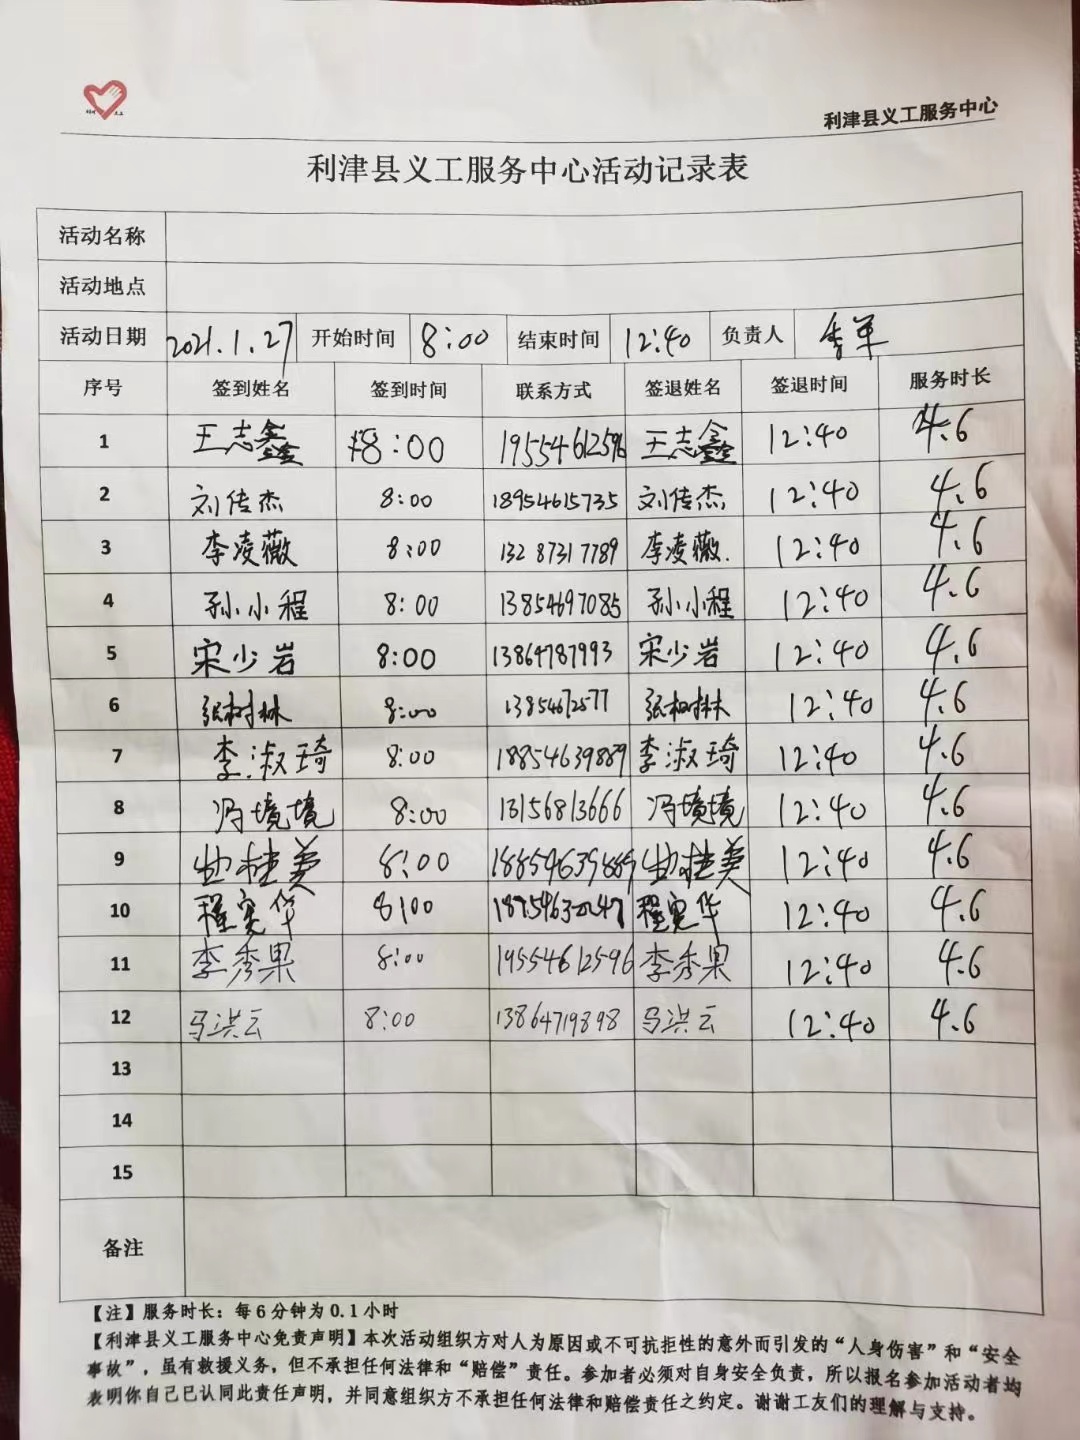 利津县义工服务中心
利津县义工服务中心活动记录表
活动名称
活动地点
活动日期 2021.1.27 开始时间 8:00 结束时间 12:40 负责人
序号 签到姓名 签到时间 联系方式 签退姓名 签退时间 服务时长
1 王志鑫 8:00 19554612596 王志鑫 12:40 4.6
2 刘传杰 8:00 18954615735 刘传杰 12:40 4.6
3 李凌薇 8:00 13287317789 李凌薇. 12:40 4.6
4 孙小程 8:00 13854697085 孙小程 12:40 4.6
5 宋少岩 8:00 13864787993 宋少岩 12:40 4.6
6 张树林 8:00 13854672577 张树林 12:40 4.6
7 李淑琦 8:00 18854639889 李淑琦 12:40 4.6
8 冯境境 8:00 13156813666 冯境境 12:40 4.6
9 曲桂美 8:00 18854639889 曲桂美 12:40 4.6
10 程宪华 8:00 程宪华 12:40 4.6
11 李秀果 8:00 19554612596 李秀果 12:40 4.6
12 马洪云 8:00 13864719898 马洪云 12:40 4.6
13
14
15
备注
【注】服务时长：每6分钟为0.1小时
【利津县义工服务中心免责声明】本次活动组织方对人为原因或不可抗拒性的意外而引发的“人身伤害”和“安全
事故”，虽有救援义务，但不承担任何法律和“赔偿”责任。参加者必须对自身安全负责，所以报名参加活动者均
表明你自己已认同此责任声明，并同意组织方不承担任何法律和赔偿责任之约定。谢谢工友们的理解与支持。